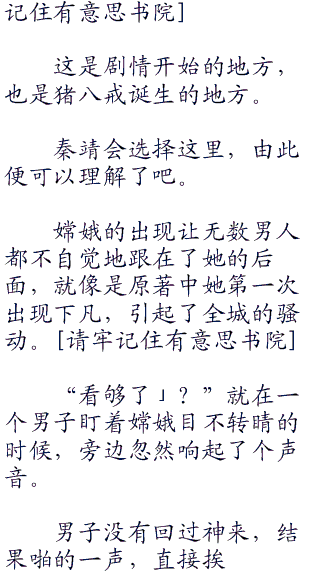 记住有意思书院]
这是剧情开始的地方，
也是猪八戒诞生的地方。
秦靖会选择这里，由此
便可以理解了吧。
嫦娥的出现让无数男人
都不自觉地跟在了她的后
面，就像是原著中她第一次
出现下凡，引起了全城的骚
动。[请牢记住有意思书院]
“看够了」？”就在一
个男子盯着嫦娥目不转睛的
时候，旁边忽然响起了个声
音。
男子没有回过神来，结
果啪的一声，直接挨